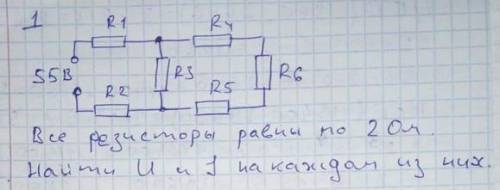 1
R1 R4
55В R3 R6
R2 R5
Все резисторы равны по 2 Ом.
Найти U и I на каждом из них.